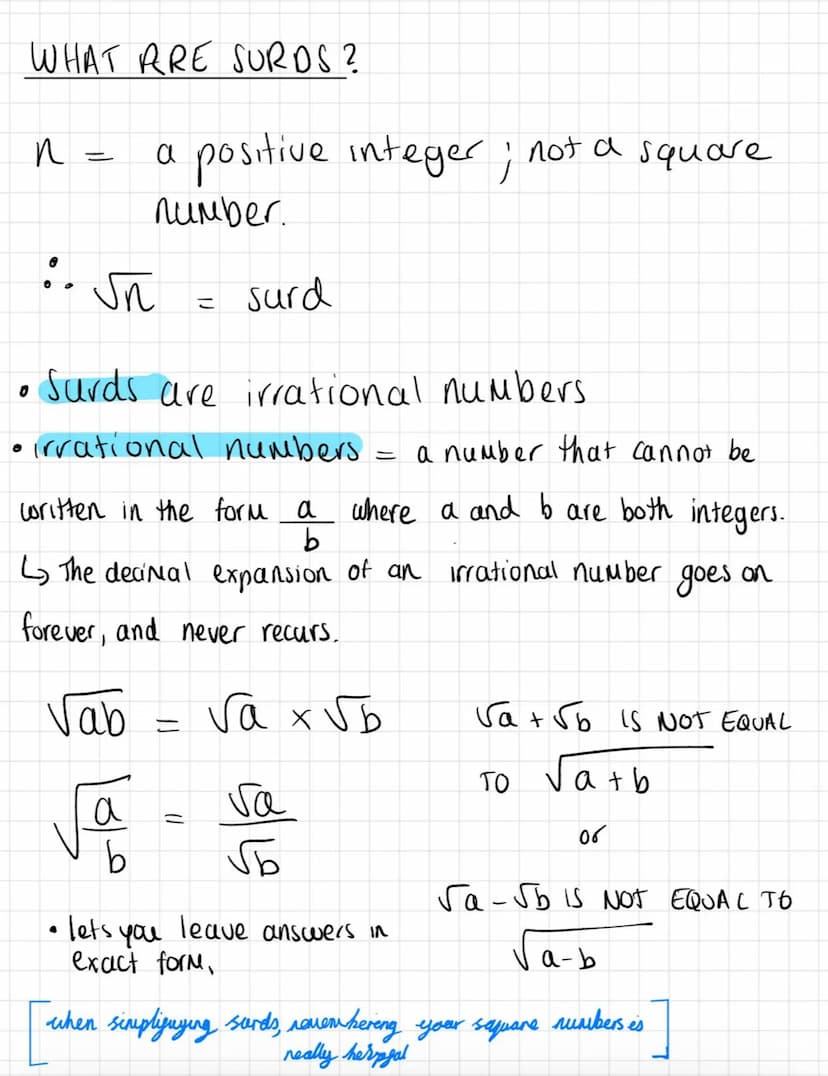 WHAT ARE SURDS?
n = a positive integer; not a square
number.
∴ √n = surd
• Surds are irrational numbers
• irrational numbers = a number that cannot be
written in the form a/b where a and b are both integers.
↳ The decimal expansion of an irrational number goes on
forever, and never recurs.
√ab = √a × √b
√(a/b) = √a/√b
• lets you leave answers in
exact form,
√a + √b IS NOT EQUAL
TO √(a + b)
or
√a - √b IS NOT EQUAL TO
√(a-b)
[when simplifying surds, remembering your square numbers is
really helpful]